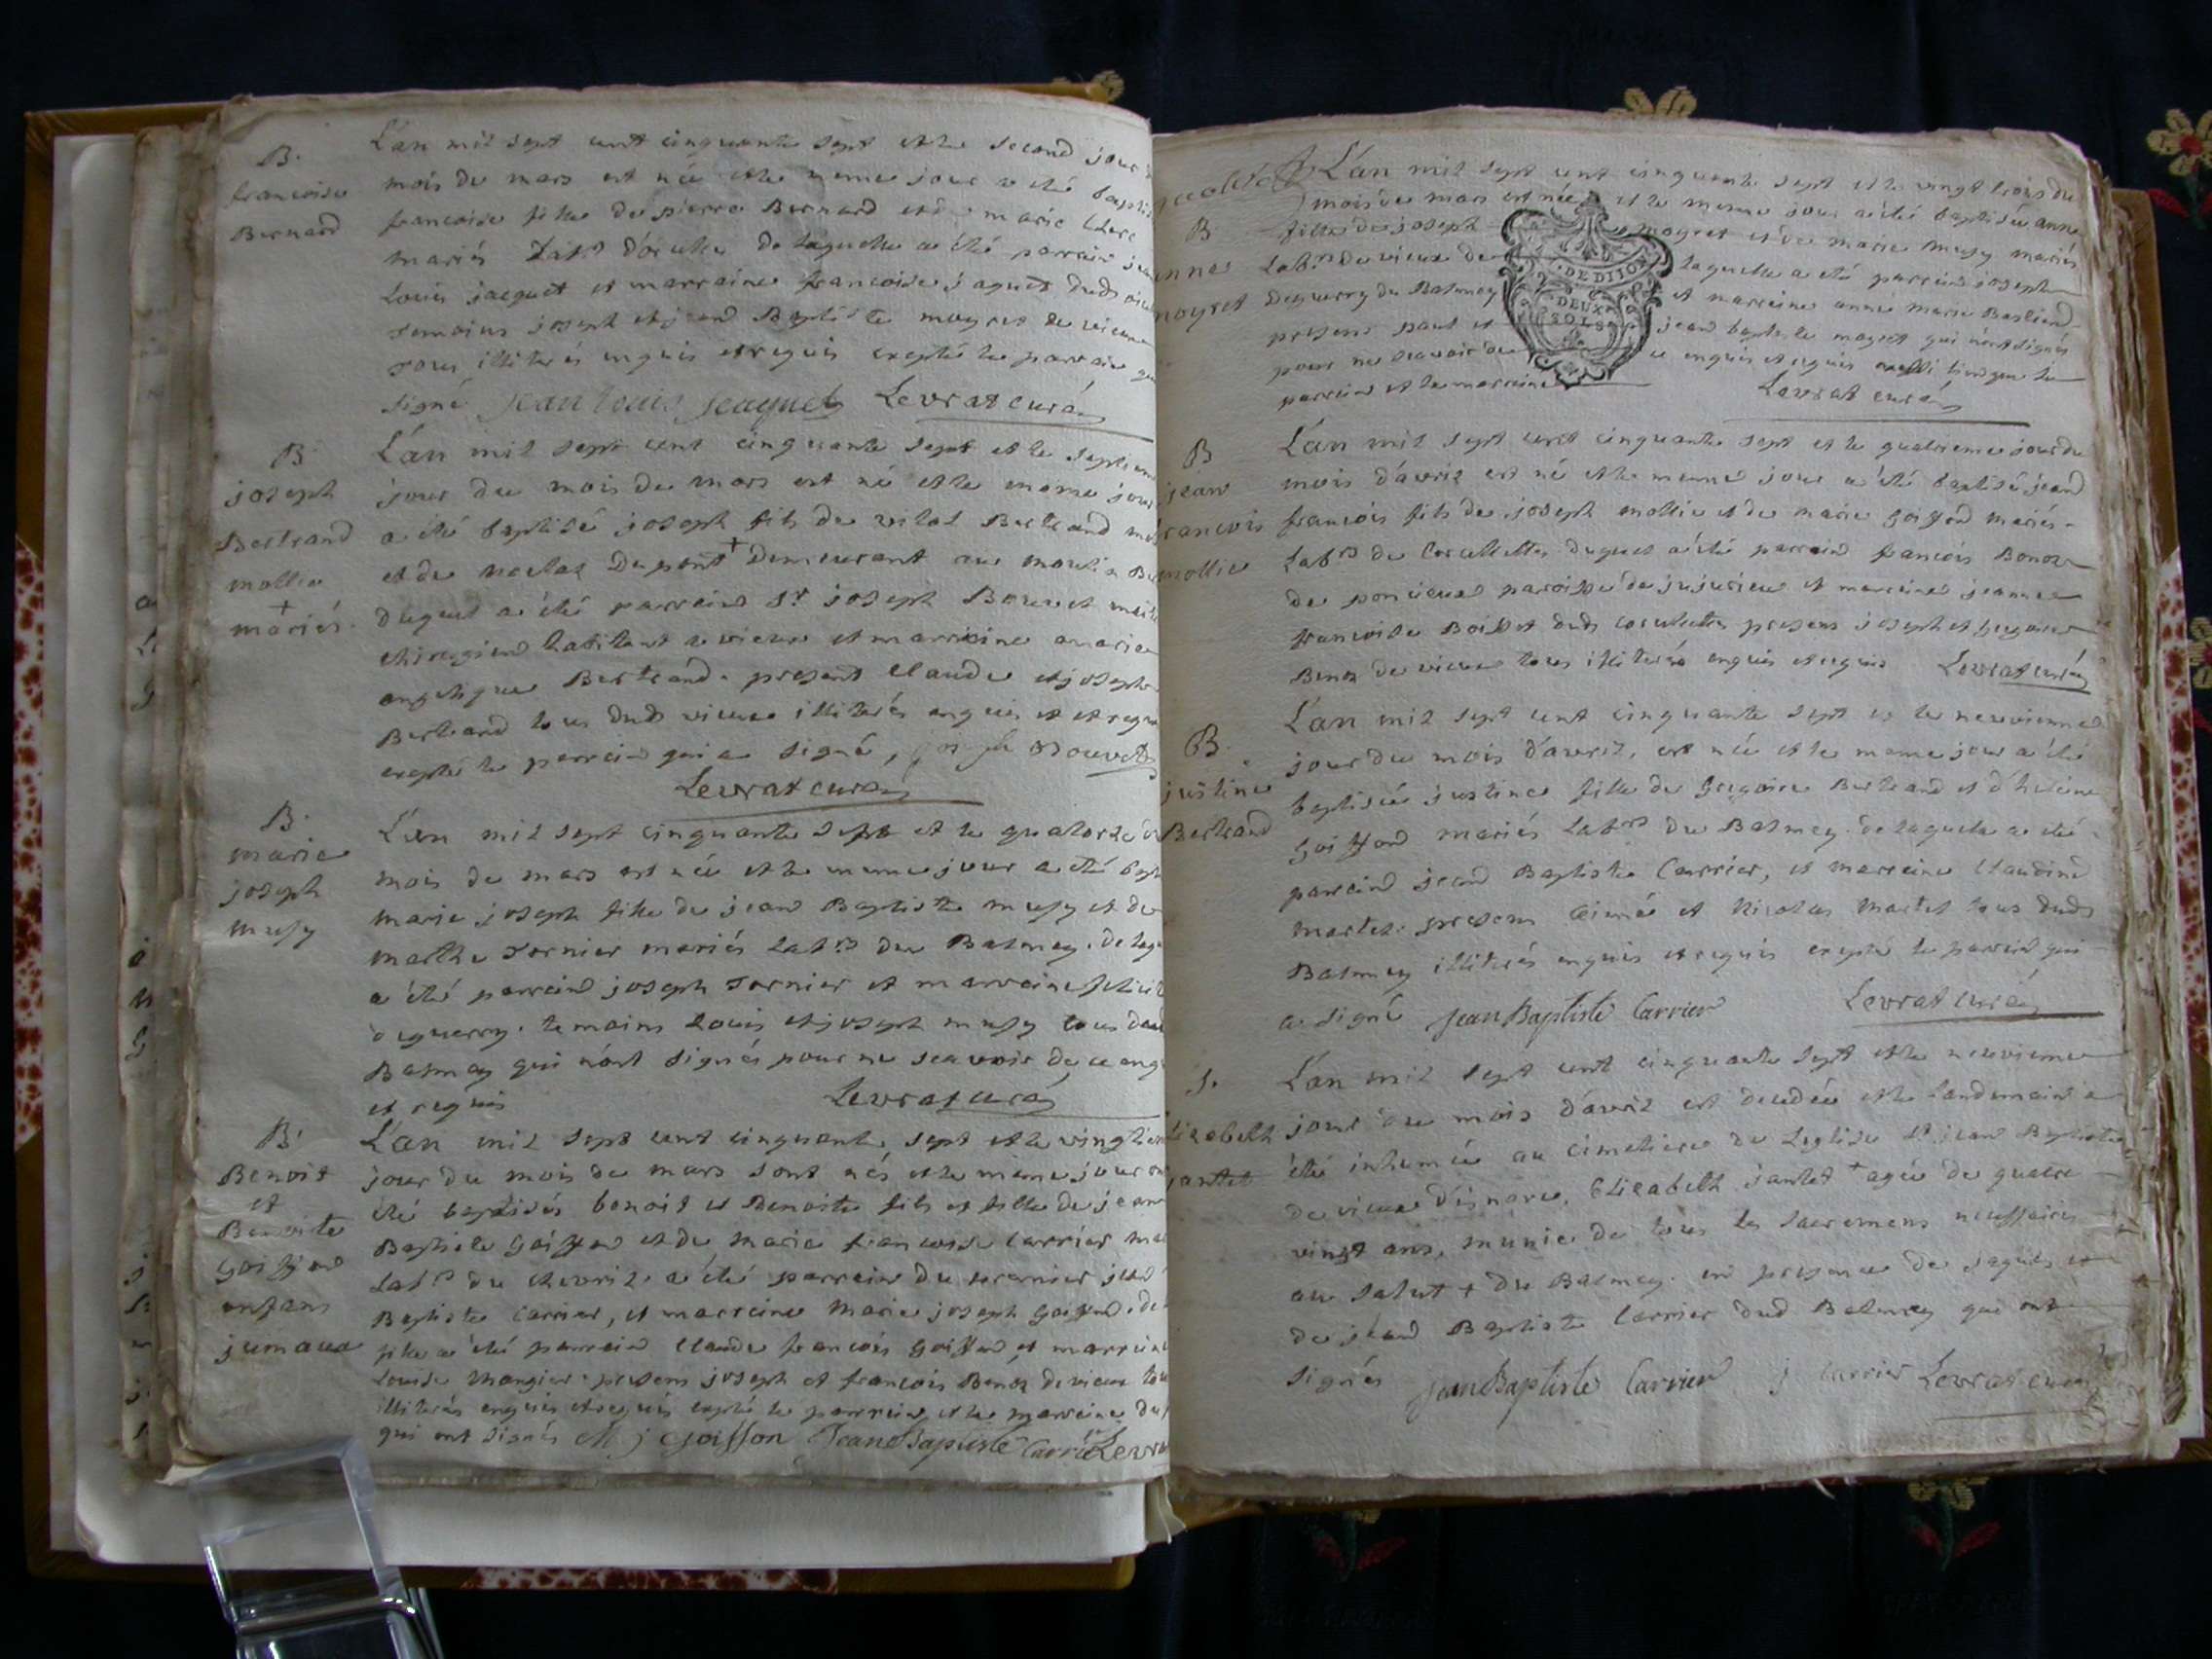 B.
francoise
Bernard
L'an mil sept cent cinquante sept et le second jour
mois de mars est née et le meme jour a été
francoise fille de pierre Bernard et de marie Clerc
mariés Labrs de laquelle a été parrain
Louis jacquet et marraine francoise jaquet duds
temoins joseph et jean Baptiste moyret de vieux
tous illiterés enquis et requis excepté le parrain
signé jean louis jeaquet Levrat curé
B.
joseph
Bertrand
mollie
+
mariés.
L'an mil sept cent cinquante sept et le
jour du mois de mars est né et le meme jour
a été baptisé joseph fils de vital Bertrand
et de Dupont + demeurant au moulin
duquel a été parrain sr joseph Bouvet
chirugien habitant a vieux et marraine marie
angelique Bertrand. present Claude et joseph
Bertrand tous duds vieux illiterés enquis et et
excepté le parrain qui a signé, joseph Bouvet
Levrat curé
B.
marie
joseph
musy
L'an mil sept cinquante sept et le quatorze
mois de mars est née et le meme jour a été
marie joseph fille de jean Baptiste musy et de
marthe Tornier mariés Labrs du Balmey. de
a été parrain joseph Tornier et marraine
deguerry. temoins Louis et joseph musy tous
Balmey qui n'ont signés pour ne scavoir de ce
et requis Levrat curé
B.
Benoit
et
Benoite
Goiffon
enfans
jumaux
L'an mil sept cent cinquante sept et le
jour du mois de mars sont nés et le meme jour
été baptisés benoit et Benoite fils et fille de jean
Baptiste Goiffon et de marie francoise Carrier
Labrs du Chevril. a été parrain du premier jean
Baptiste Carrier, et marraine marie joseph Goiffon. de
fille a été parrain Claude francois Goiffon et marraine
Louise mangier. presens joseph et francois Benoz de vieux
illiterés enquis et requis excepté le parrain et la marraine du
qui ont signés M j Goiffon Jean Baptiste Carrier
B
anne
moyret
L'an mil sept cent cinquante sept et le vingt trois du
mois de mars est née et le meme jour a été baptisée anne
fille de joseph moyret et de marie musy mariés
Labrs de vieux laquelle a été parrain joseph
deguerry du Balmey et marraine anne marie Bastiend
presens paul et jean baptiste moyret qui n'ont signés
pour ne scavoir de ce enquis et requis
parrain et la marraine
DE DIJON
DEUX
SOLS
Levrat curé
B
jean
francois
mollie
L'an mil sept cent cinquante sept et le quatrieme jour du
mois d'avril est né et le meme jour a été baptisé jean
francois fils de joseph mollie et de marie Goiffon mariés
Labrs de duquel a été parrain francois Bonoz
de poncieux paroisse de jujurieux et marraine jeanne
francoise duds presens joseph et
Benoz de vieux tous illiterés enquis et requis Levrat curé
B.
justine
Bertrand
L'an mil sept cent cinquante sept et le neuvieme
jour du mois d'avril, est née et le meme jour a été
baptisée justine fille de Gregoire Bertrand et d'helene
Goiffon mariés Labrs du Balmey. de laquelle a été
parrain jean Baptiste Carrier, et marraine Claudine
martel. presens aimé et Nicolas martel tous duds
Balmey illiterés enquis et requis excepté le parrain qui
a signé Jean Baptiste Carrier Levrat curé
S.
Elizabeth
jantet
L'an mil sept cent cinquante sept et le neuvieme
jour du mois d'avril est decedée et le landemain a
été inhumée au cimetiere de Leglise st jean Baptiste
de vieux d'isnave, Elizabeth jantet + agée de quatre
vingt ans, munie de tous les sacremens necessaires
au salut + du Balmey. en presence de jaques et
de jean Baptiste Carrier dud Balmey qui ont
signés Jean Baptiste Carrier j Carrier Levrat curé